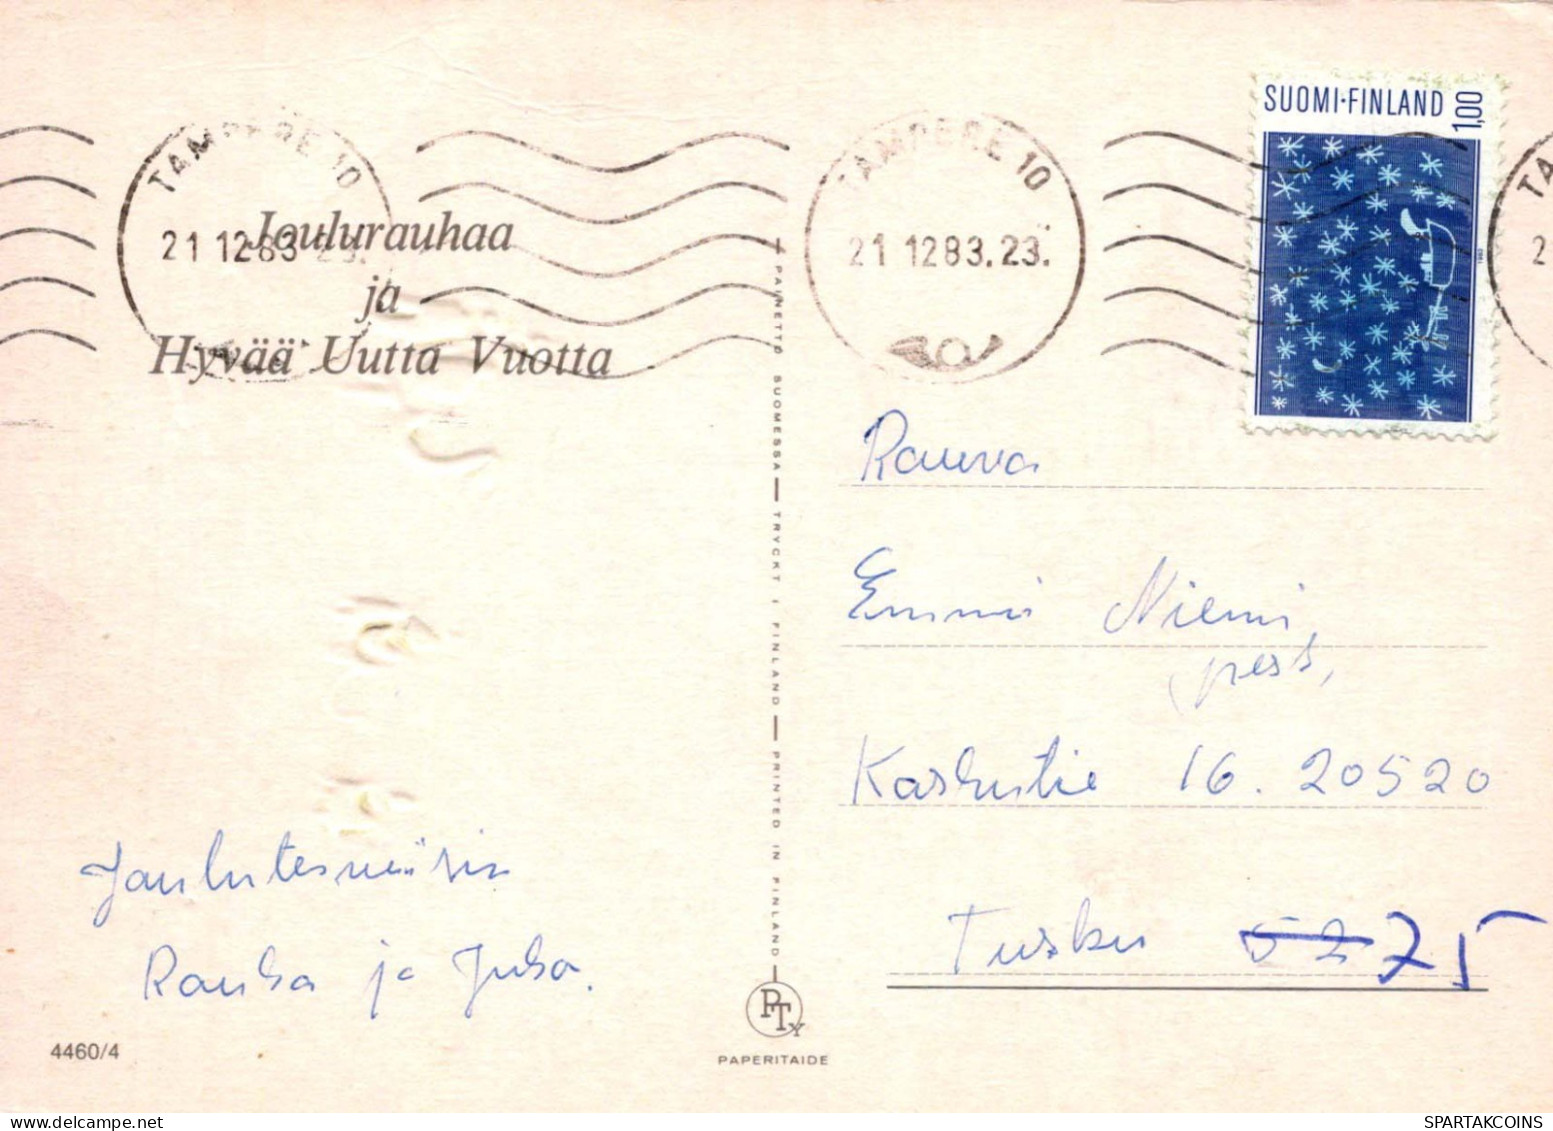 SUOMI·FINLAND 1,00
1983
TAMPERE 10
21 12 83.23.
TAMPERE 10
21 12 83.23.
TA
2
Joulurauhaa
ja
Hyvää Uutta Vuotta
PAINETTO SUOMESSA — TRYCKT I FINLAND — PRINTED IN FINLAND
Rouva
Emmi Niemi,
Kaskutie 16. 20520
Turku 52 75
Rauha ja Juha.
PTy
PAPERITAIDE
4460/4
SPARTAKCOINS.COM